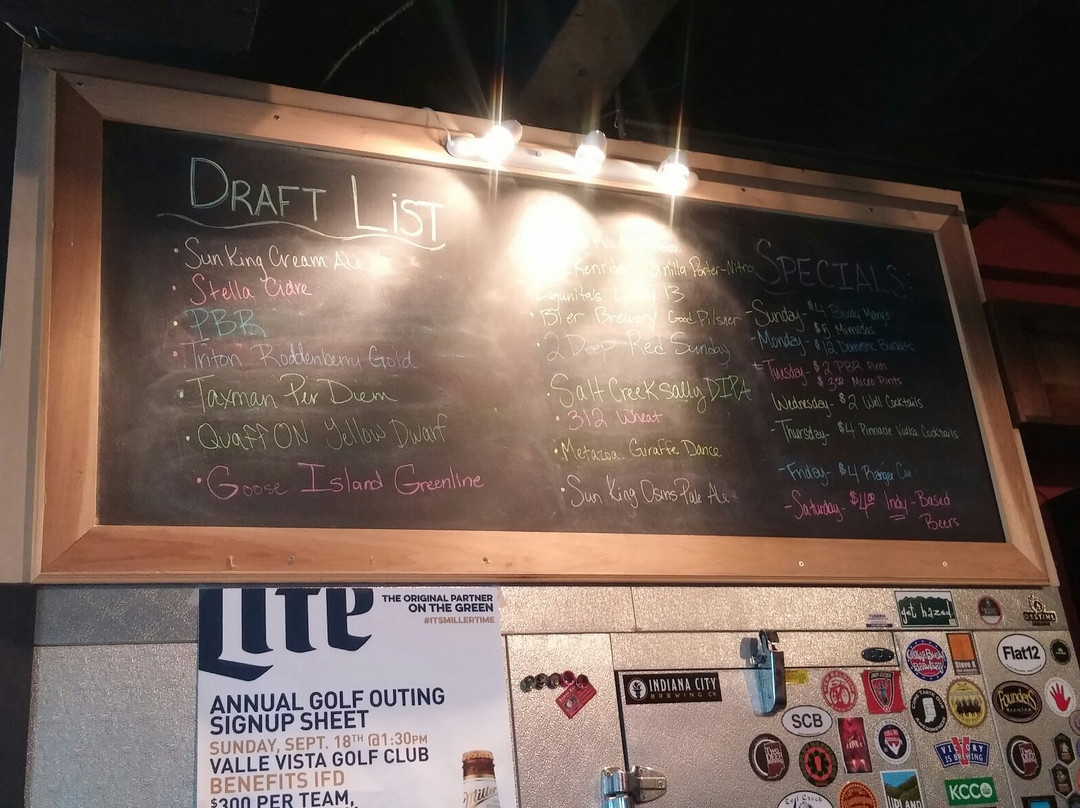 DRAFT LIST
· Sun King Cream Ale
· Stella Cidre
· PBR
· Triton Roddenberry Gold
· Taxman Per Diem
· Quaff ON Yellow Dwarf
· Goose Island Greenline
Vanilla Porter-Nitro
Lagunita's 13
· Bier Brewery Good Pilsner
· 2 Deep Red Sunday
Salt Creek Sally DIPA
· 312 Wheat
· Metazoa Giraffe Dance
· Sun King Osiris Pale Ale
SPECIALS:
- Sunday - $4 Bloody Mary's
$5 Mimosas
- Monday - $12 Domestic Buckets
- Tuesday - $2 PBR Pints
$3.00 Micro Pints
Wednesday - $2 Well Cocktails
- Thursday - $4 Pinnacle Vodka Cocktails
- Friday - $4
- Saturday - $4.00 Indy-Based
Beers
Lite
THE ORIGINAL PARTNER
ON THE GREEN
#ITSMILLERTIME
ANNUAL GOLF OUTING
SIGNUP SHEET
SUNDAY, SEPT. 18TH @1:30PM
VALLE VISTA GOLF CLUB
BENEFITS IFD
$300 PER TEAM,
Miller
INDIANA CITY
BREWING CO
get hazed
Flat12
SCB
Founders
VICTORY
IS BREWING
UPLAND
KCCO